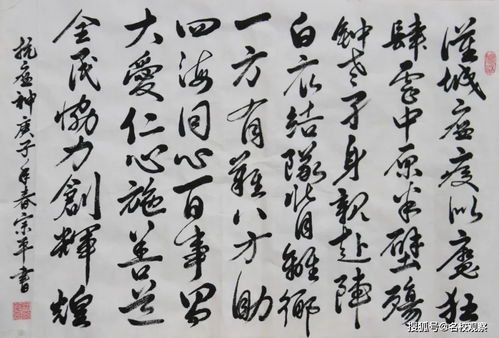 漢城瘟疫似魔狂
肆虐中原半壁殤
鍾老孑身親赴陣
白衣結隊背離鄉
一方有難八方助
四海同心百事昌
大愛仁心施善道
全民協力創輝煌
抗瘟神庚子年春宗平書
搜狐号@名校观察